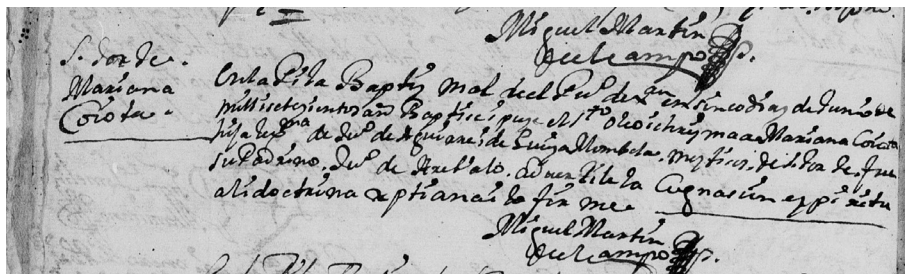 Miguel Martin
del Campo
S. Jorde.
Mariana
Coiota.
En la Pila Baptis mal del Pu.º de en sinco dias de Junio de
mill i setesientos an Baptisé i puse el S.to Oleo i chrisma a Mariana Coiota
hija leg.ma de Ju.º de Aguirre i de Luiza Mombela. mestisos. de S. Jorde. fue
su Padrino. Ju.º de Arebalo. adverti le la Cognasion espiritu
al i doctrina xptiana i lo firme
Miguel Martin
del Campo